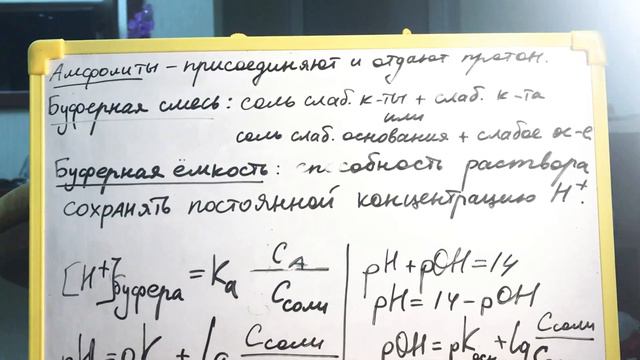 Амфолиты – присоединяют и отдают протон.
Буферная смесь: соль слаб. к-ты + слаб. к-та
или
соль слаб. основания + слабое ос-е
Буферная ёмкость: способность раствора
сохранять постоянной концентрацию H⁺.
[H⁺]буфера = Kа Cа / Cсоли
pH + pOH = 14
pH = 14 - pOH
pH = pK + lg Cсоли
pOH = pKосн + lg Cсоли / C